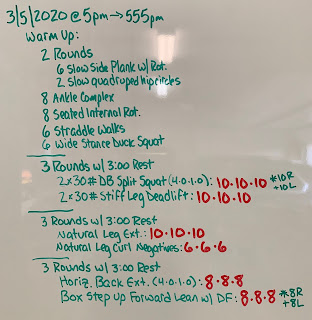 3/5/2020 @ 5pm → 555pm
Warm Up:
2 Rounds
6 Slow Side Plank w/ Rot.
2 Slow quadruped hip circles
8 Ankle Complex
8 Seated Internal Rot.
6 Straddle Walks
6 Wide Stance Duck Squat
3 Rounds w/ 3:00 Rest
2x30# DB Split Squat (4.0.1.0): 10.10.10 *10R +10L
2x30# Stiff Leg Deadlift: 10.10.10
3 Rounds w/ 3:00 Rest
Natural Leg Ext.: 10.10.10
Natural Leg Curl Negatives: 6.6.6
3 Rounds w/ 3:00 Rest
Horiz. Back Ext. (4.0.1.0): 8.8.8
Box Step Up Forward Lean w/ DF: 8.8.8 *8R +8L